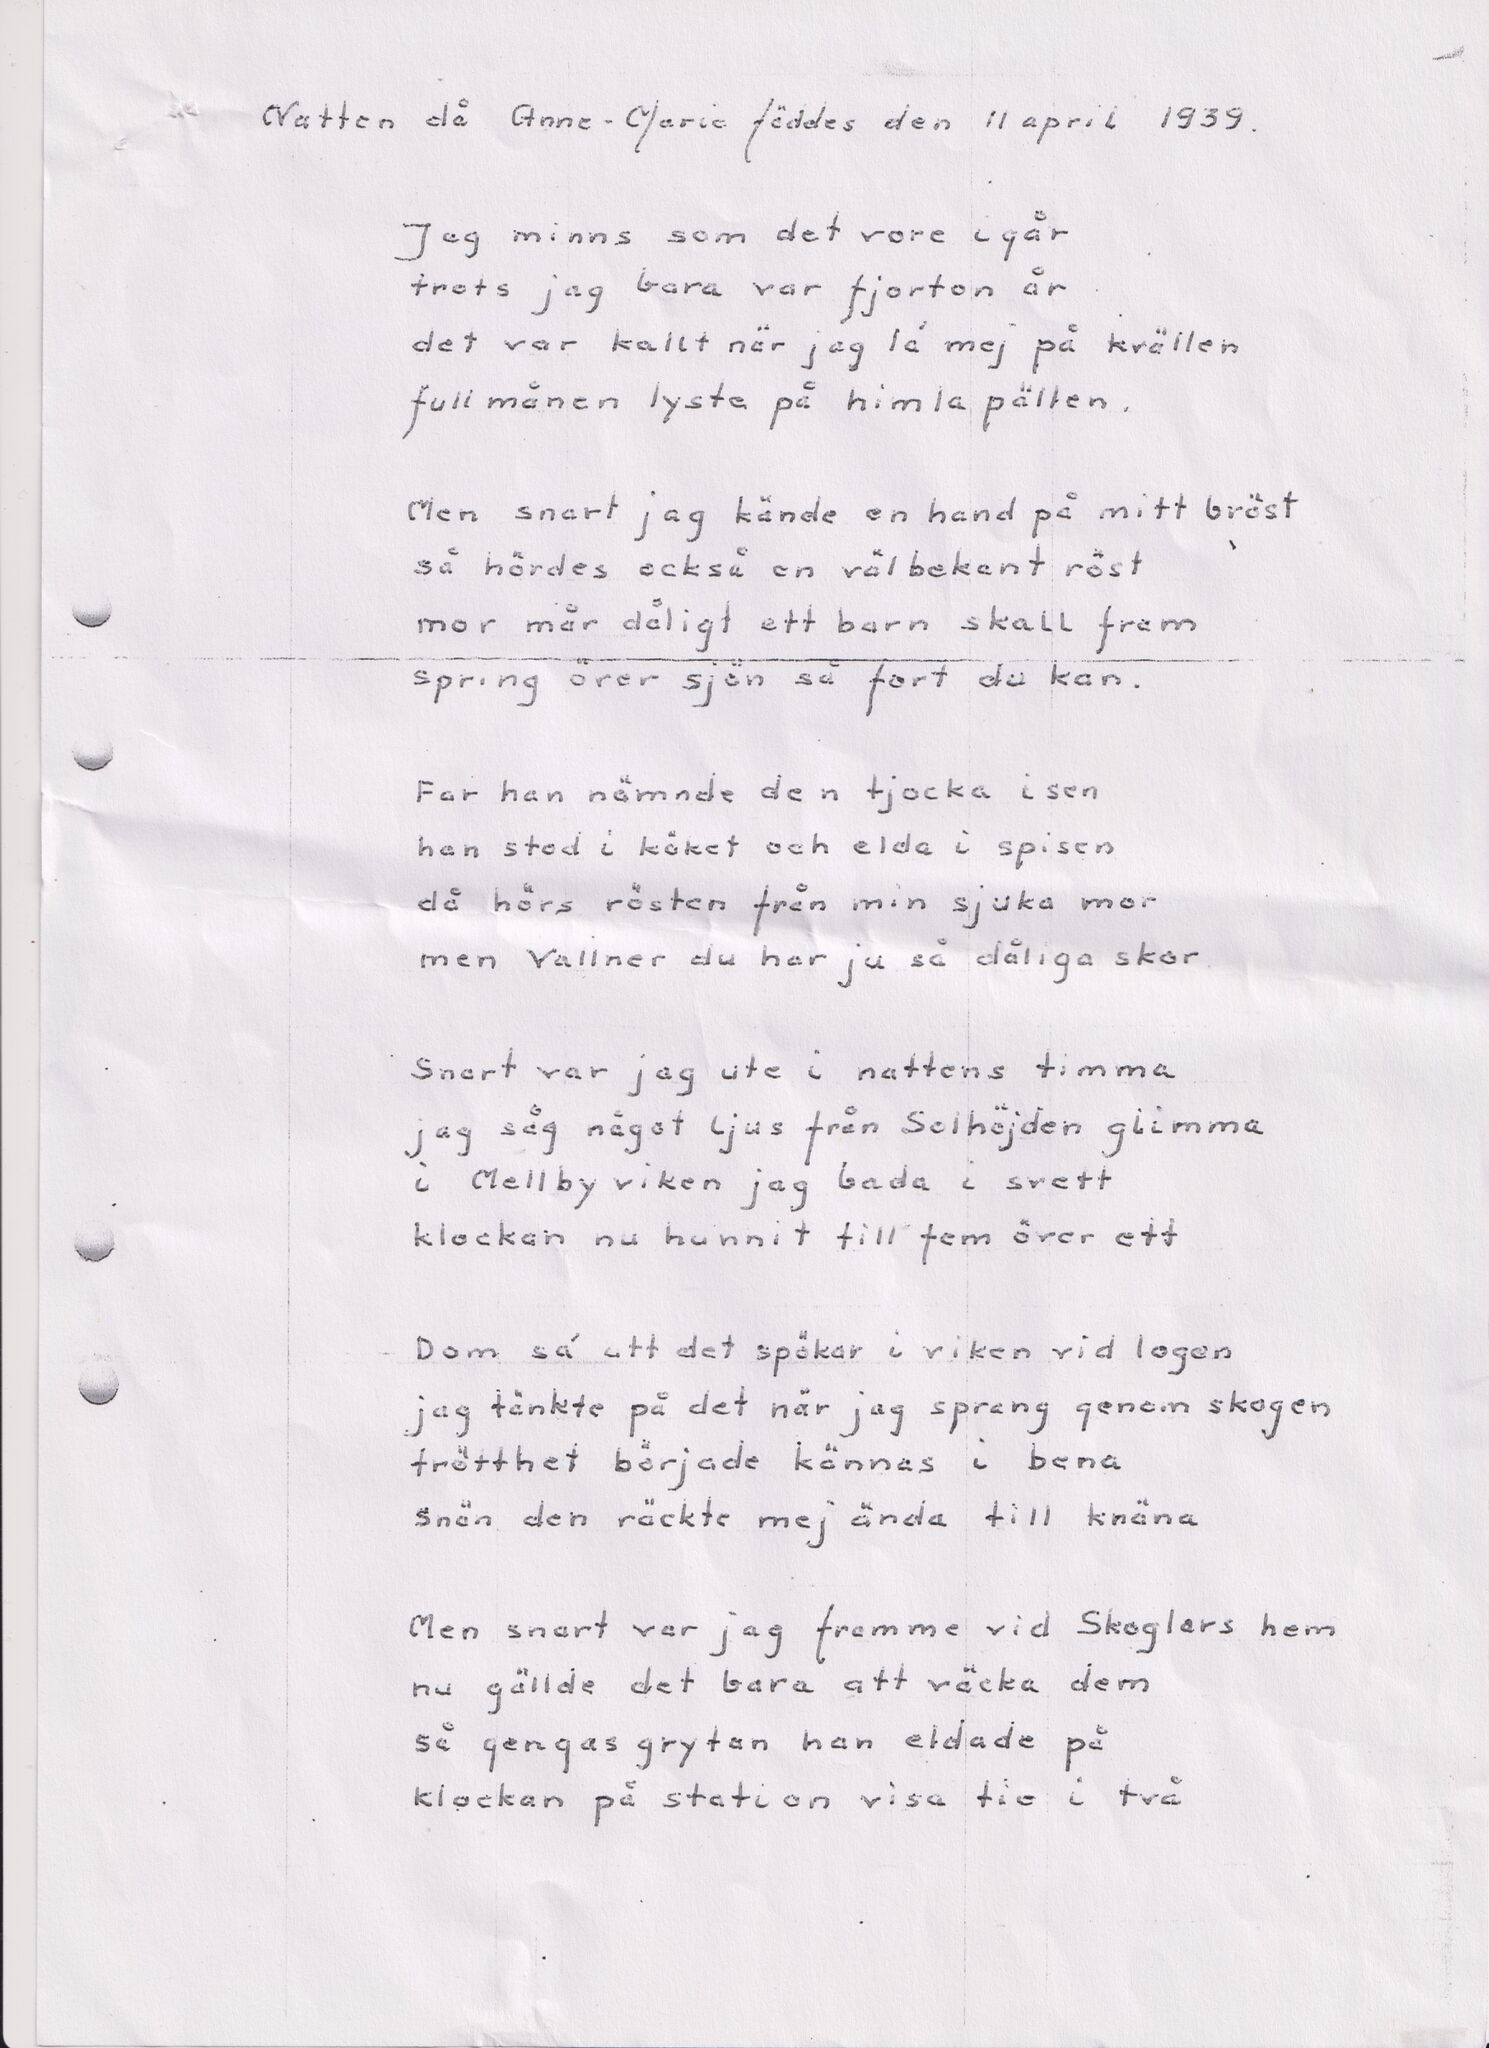 Natten då Anne-Marie föddes den 11 april 1939.
Jag minns som det vore igår
trots jag bara var fjorton år
det var kallt när jag la mej på kvällen
fullmånen lyste på himla pällen.
Men snart jag kände en hand på mitt bröst
så hördes också en välbekant röst
mor mår dåligt ett barn skall fram
spring över sjön så fort du kan.
Far han nämnde den tjocka isen
han stod i köket och elda i spisen
då hörs rösten från min sjuka mor
men Vallner du har ju så dåliga skor
Snart var jag ute i nattens timma
jag såg något ljus från Solhöjden glimma
i Mellbyviken jag bada i svett
klockan nu hunnit till fem över ett
Dom sa att det spökar i viken vid logen
jag tänkte på det när jag sprang genom skogen
trötthet började kännas i bena
snön den räckte mej ända till knäna
Men snart var jag framme vid Skoglars hem
nu gällde det bara att väcka dem
så gengasgrytan han eldade på
klockan på station visa tio i två